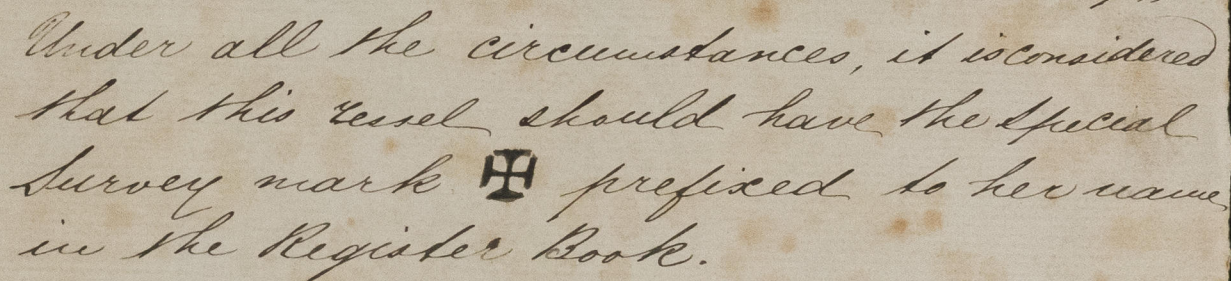 Under all the circumstances, it is considered
that this vessel should have the Special
Survey mark ✠ prefixed to her name
in the Register Book.